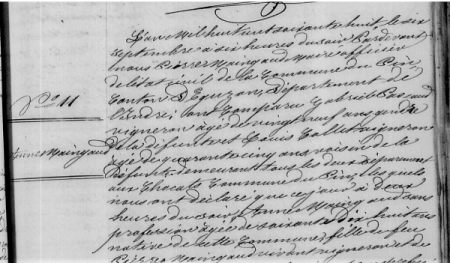 L'an Mil huit cent soixante huit le six
septembre à six heures du soir Pardevant
Nous Pierre Maingaud Maire officier
de l'état civil de la Commune du
Canton D'Eguzon, Département de
L'Indre, ont Comparu Gabriel
vigneron agé de vingt neuf ans gendre
N° 11
de la défunte et Louis Tallet vigneron
Anne Maingaud
agé de quarante cinq ans voisin de la
défunte demeurant tous les deux séparément
aux Chocats Commune du les quels
nous ont déclaré que ce jour à deux
heures du soir, Anne Maingaud sans
profession agée de soixante dix huit ans
native de cette Commune, fille de feu
Maingaud vivant vigneron et de